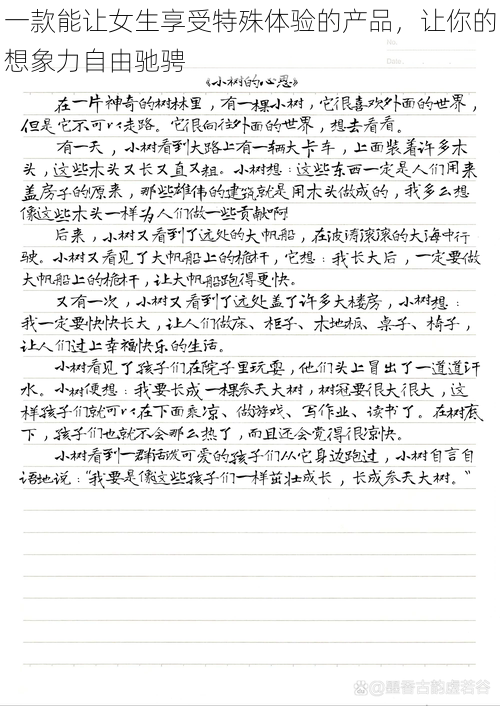 一款能让女生享受特殊体验的产品，让你的
想象力自由驰骋
No.
Date
《小树的心思》
在一片神奇的树林里，有一棵小树，它很喜欢外面的世界，
但是它不可以走路。它很向往外面的世界，想去看看。
有一天，小树看到大路上有一辆大卡车，上面装着许多木
头，这些木头又长又直又粗。小树想：这些东西一定是人们用来
盖房子的原来，那些雄伟的建筑就是用木头做成的，我多么想
像这些木头一样为人们做一些贡献啊
后来，小树又看到了远处的大帆船，在波涛滚滚的大海中行
驶。小树又看见了大帆船上的桅杆，它想：我长大后，一定要做
大帆船上的桅杆，让大帆船跑得更快。
又有一次，小树又看到了远处盖了许多大楼房，小树想：
我一定要快快长大，让人们做床、柜子、木地板、桌子、椅子，
让人们过上幸福快乐的生活。
小树看见了孩子们在院子里玩耍，他们头上冒出了一道道汗
水。小树便想：我要长成一棵参天大树，树冠要很大很大，这
样孩子们就可以在下面乘凉、做游戏、写作业、读书了。在树底
下，孩子们也就不会那么热了，而且还会觉得很凉快。
小树看到一群活泼可爱的孩子们从它身边跑过，小树自言自
语地说：“我要是像这些孩子们一样茁壮成长，长成参天大树。”